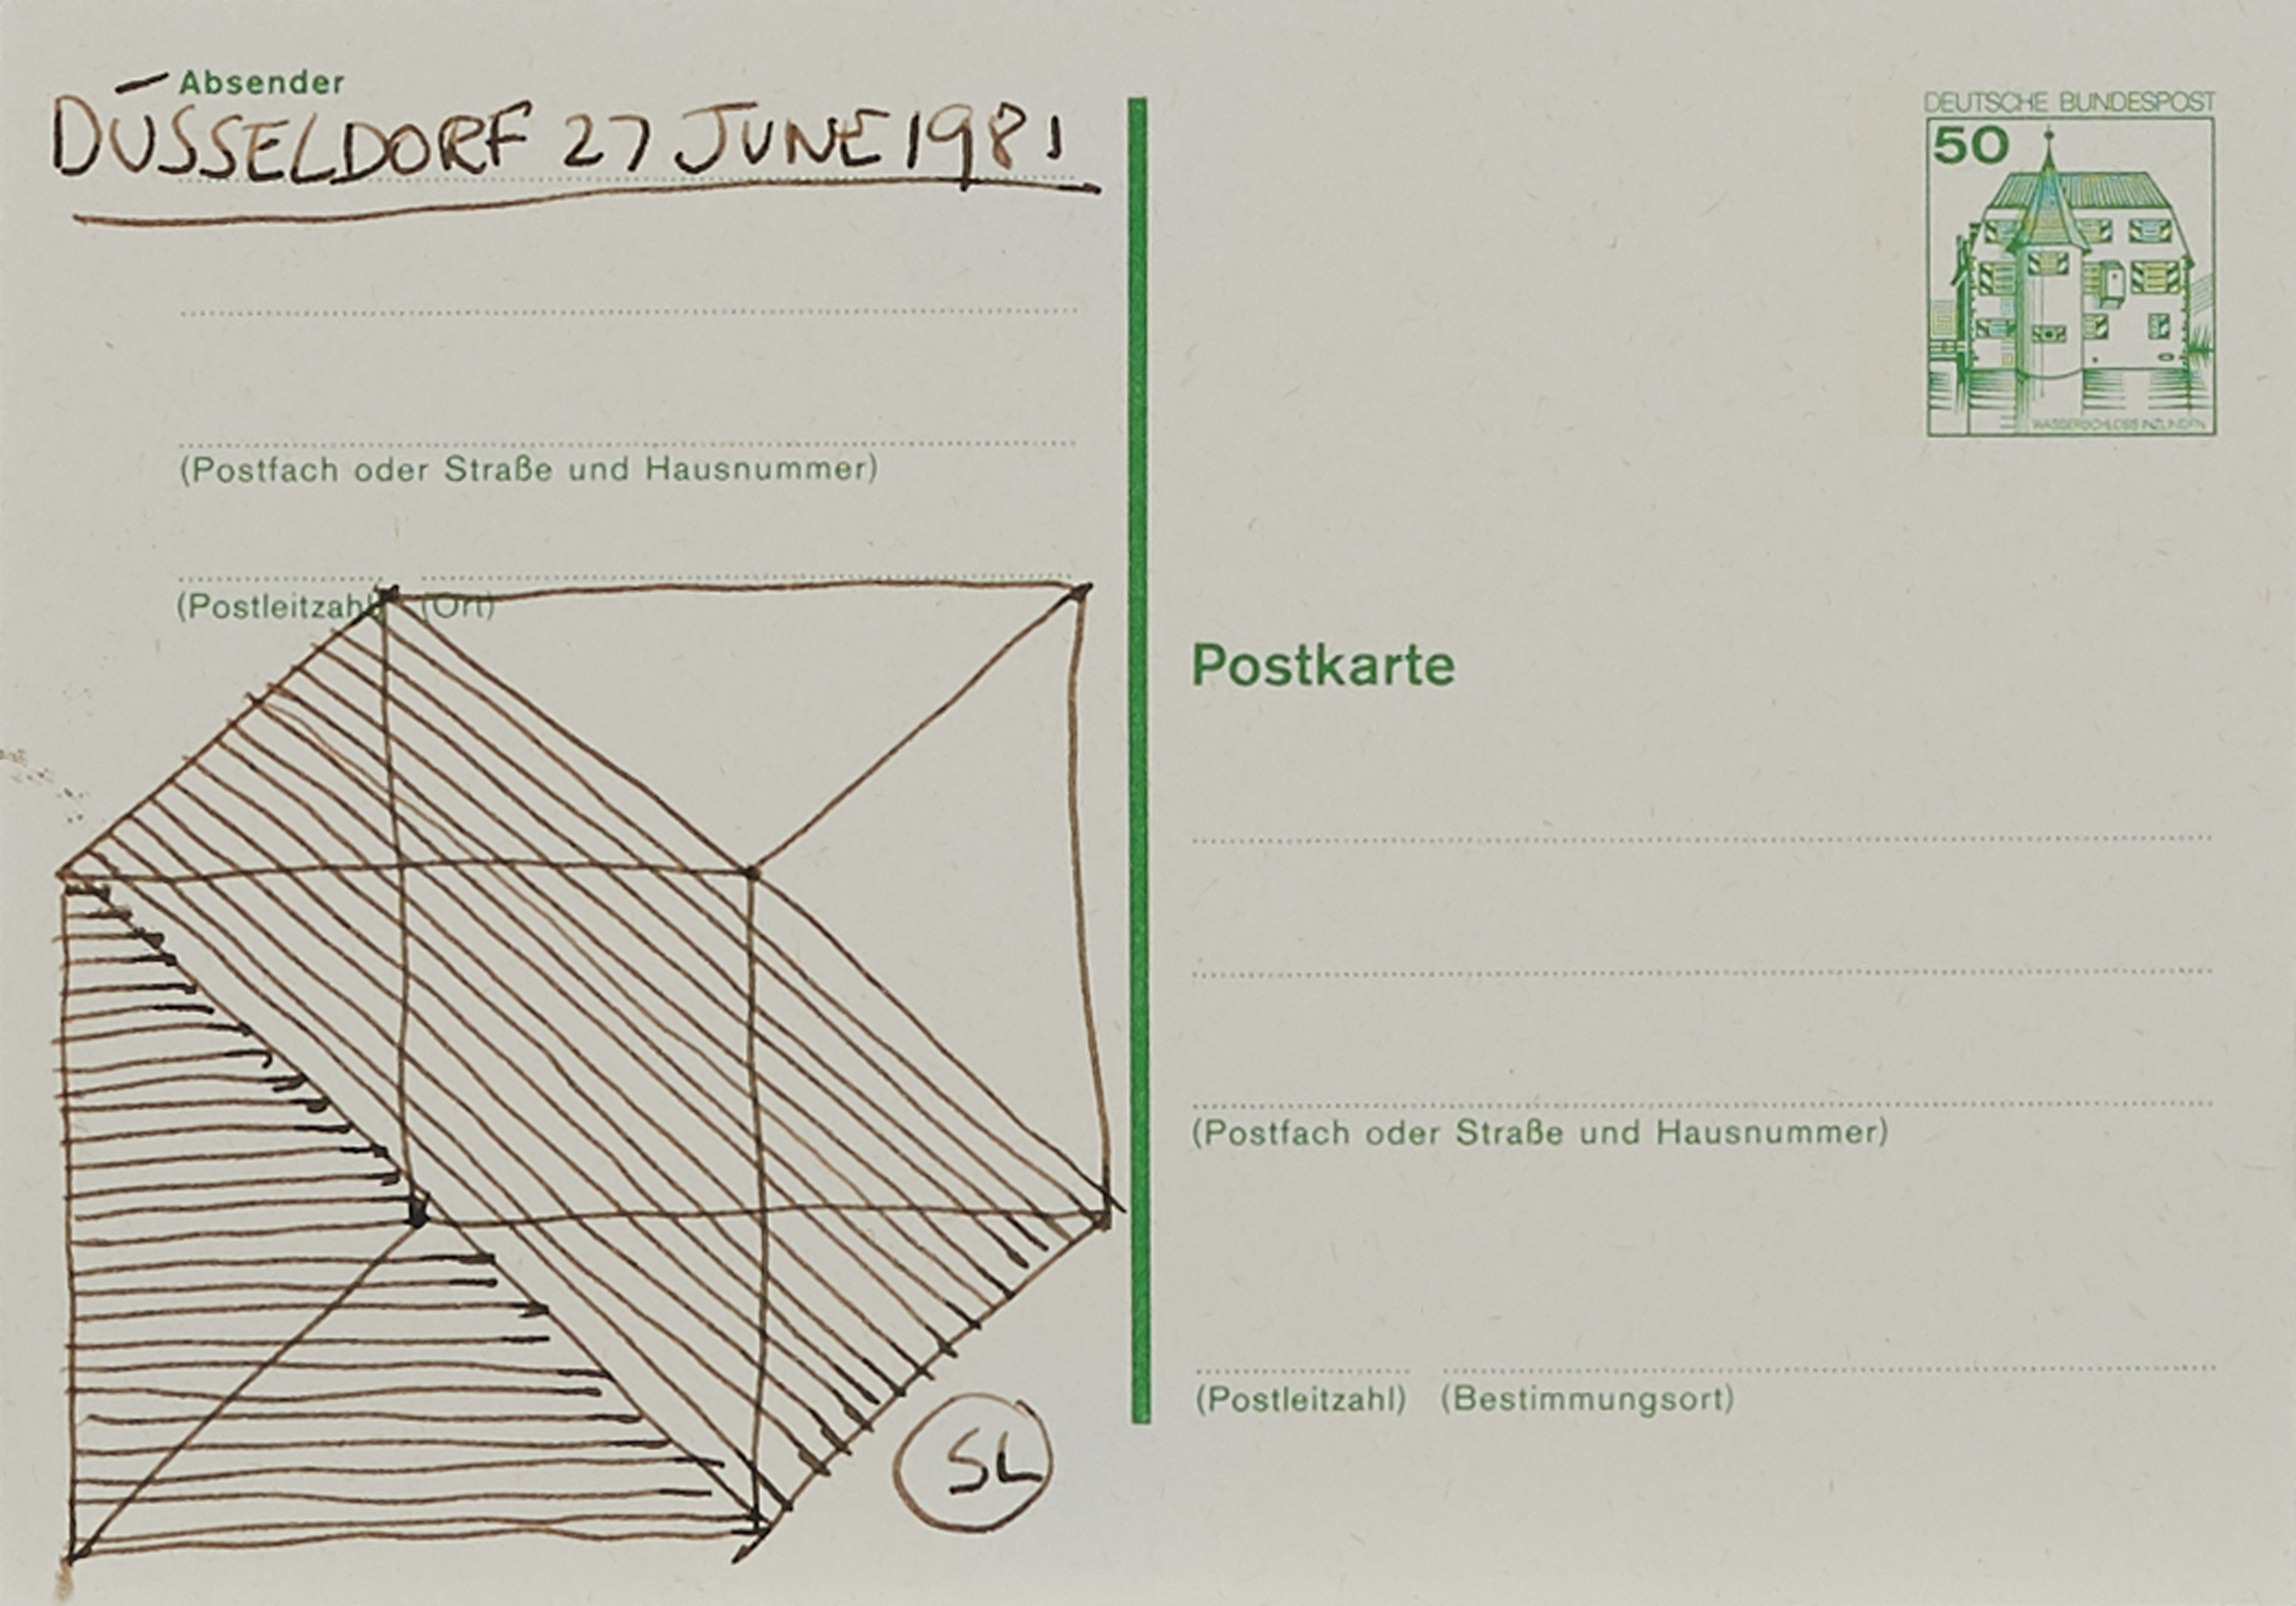 Absender
DÜSSELDORF 27 JUNE 1981
(Postfach oder Straße und Hausnummer)
(Postleitzahl) (Ort)
SL
DEUTSCHE BUNDESPOST
50
WASSERSCHLOSS INZLINGEN
Postkarte
(Postfach oder Straße und Hausnummer)
(Postleitzahl) (Bestimmungsort)